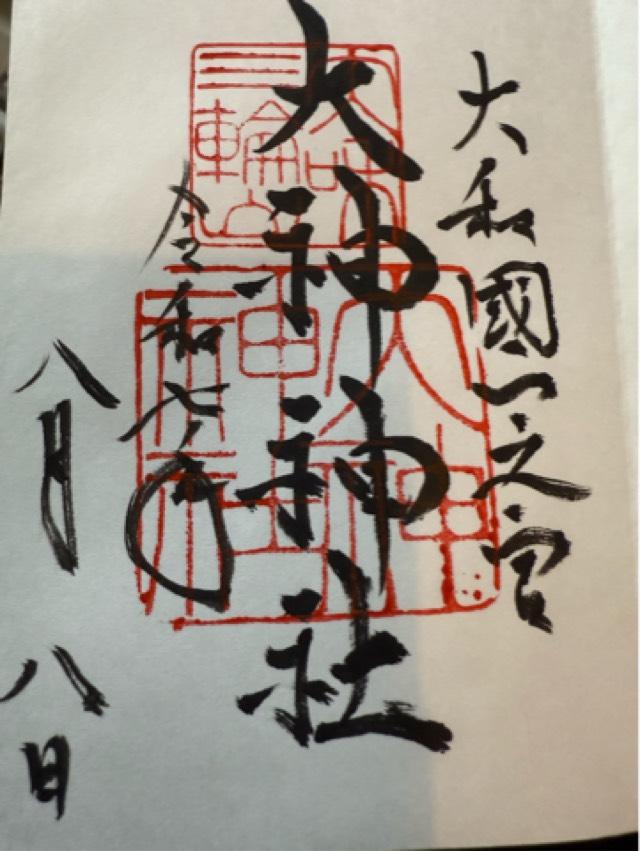 大和國一之宮
大神神社
令和七年
八月八日
三輪山
大神神社